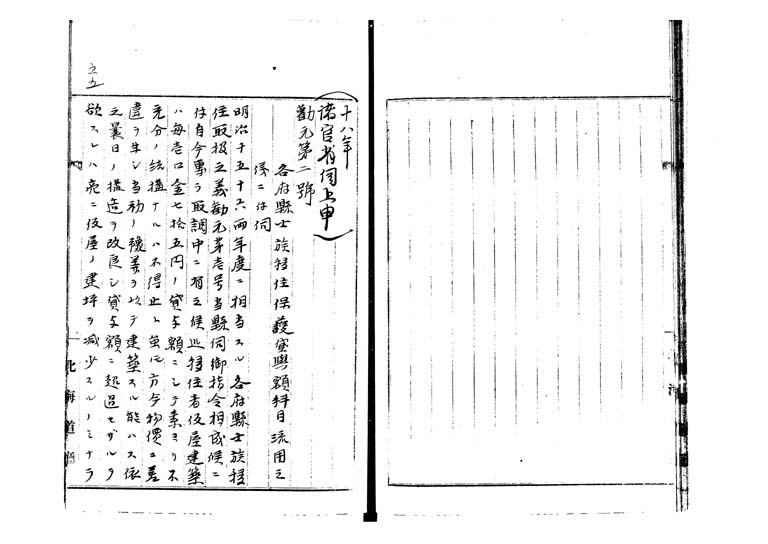 十八年
(諸官省伺上申)
勸元第二號
各府縣士族移住保護貸與額科目流用之
儀ニ付伺
明治十五十六兩年度ニ相当スル各府縣士族移
住取扱之義勸元第壱号当縣伺御指令相成候ニ
付自今専ラ取調中ニ有之候処移住者仮屋建築
ハ毎壱口金七拾五円ノ貸与額ニシテ素ヨリ不
充分ノ結構ナルハ不得止ト虽モ方今物價ニ差
違ヲ生シ当初ノ積算ヲ以テ建築スル能ハス依
之曩日ノ構造ヲ改良シ貸与額ニ超過セザルヲ
欲スレハ飛ニ仮屋ノ建坪ヲ減少スルノミナラ
北海道
之五